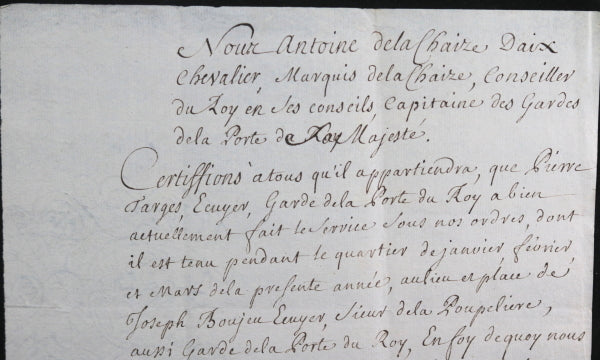 Nous Antoine dela Chaize Daix
Chevalier, Marquis dela Chaize, Conseiller
du Roy en ses conseils, Capitaine des Gardes
dela Porte de Majesté.
Certiffions à tous qu'il appartiendra, que Pierre
Targes, Ecuyer, Garde dela Porte du Roy a bien
actuellement fait le service sous nos ordres, dont
il est tenu pendant le quartier de janvier, février
et Mars dela presente année, au lieu et place de
Joseph Boujeu Ecuyer, Sieur de la Poupeliere,
aussi Garde dela Porte du Roy, En foy de quoy nous